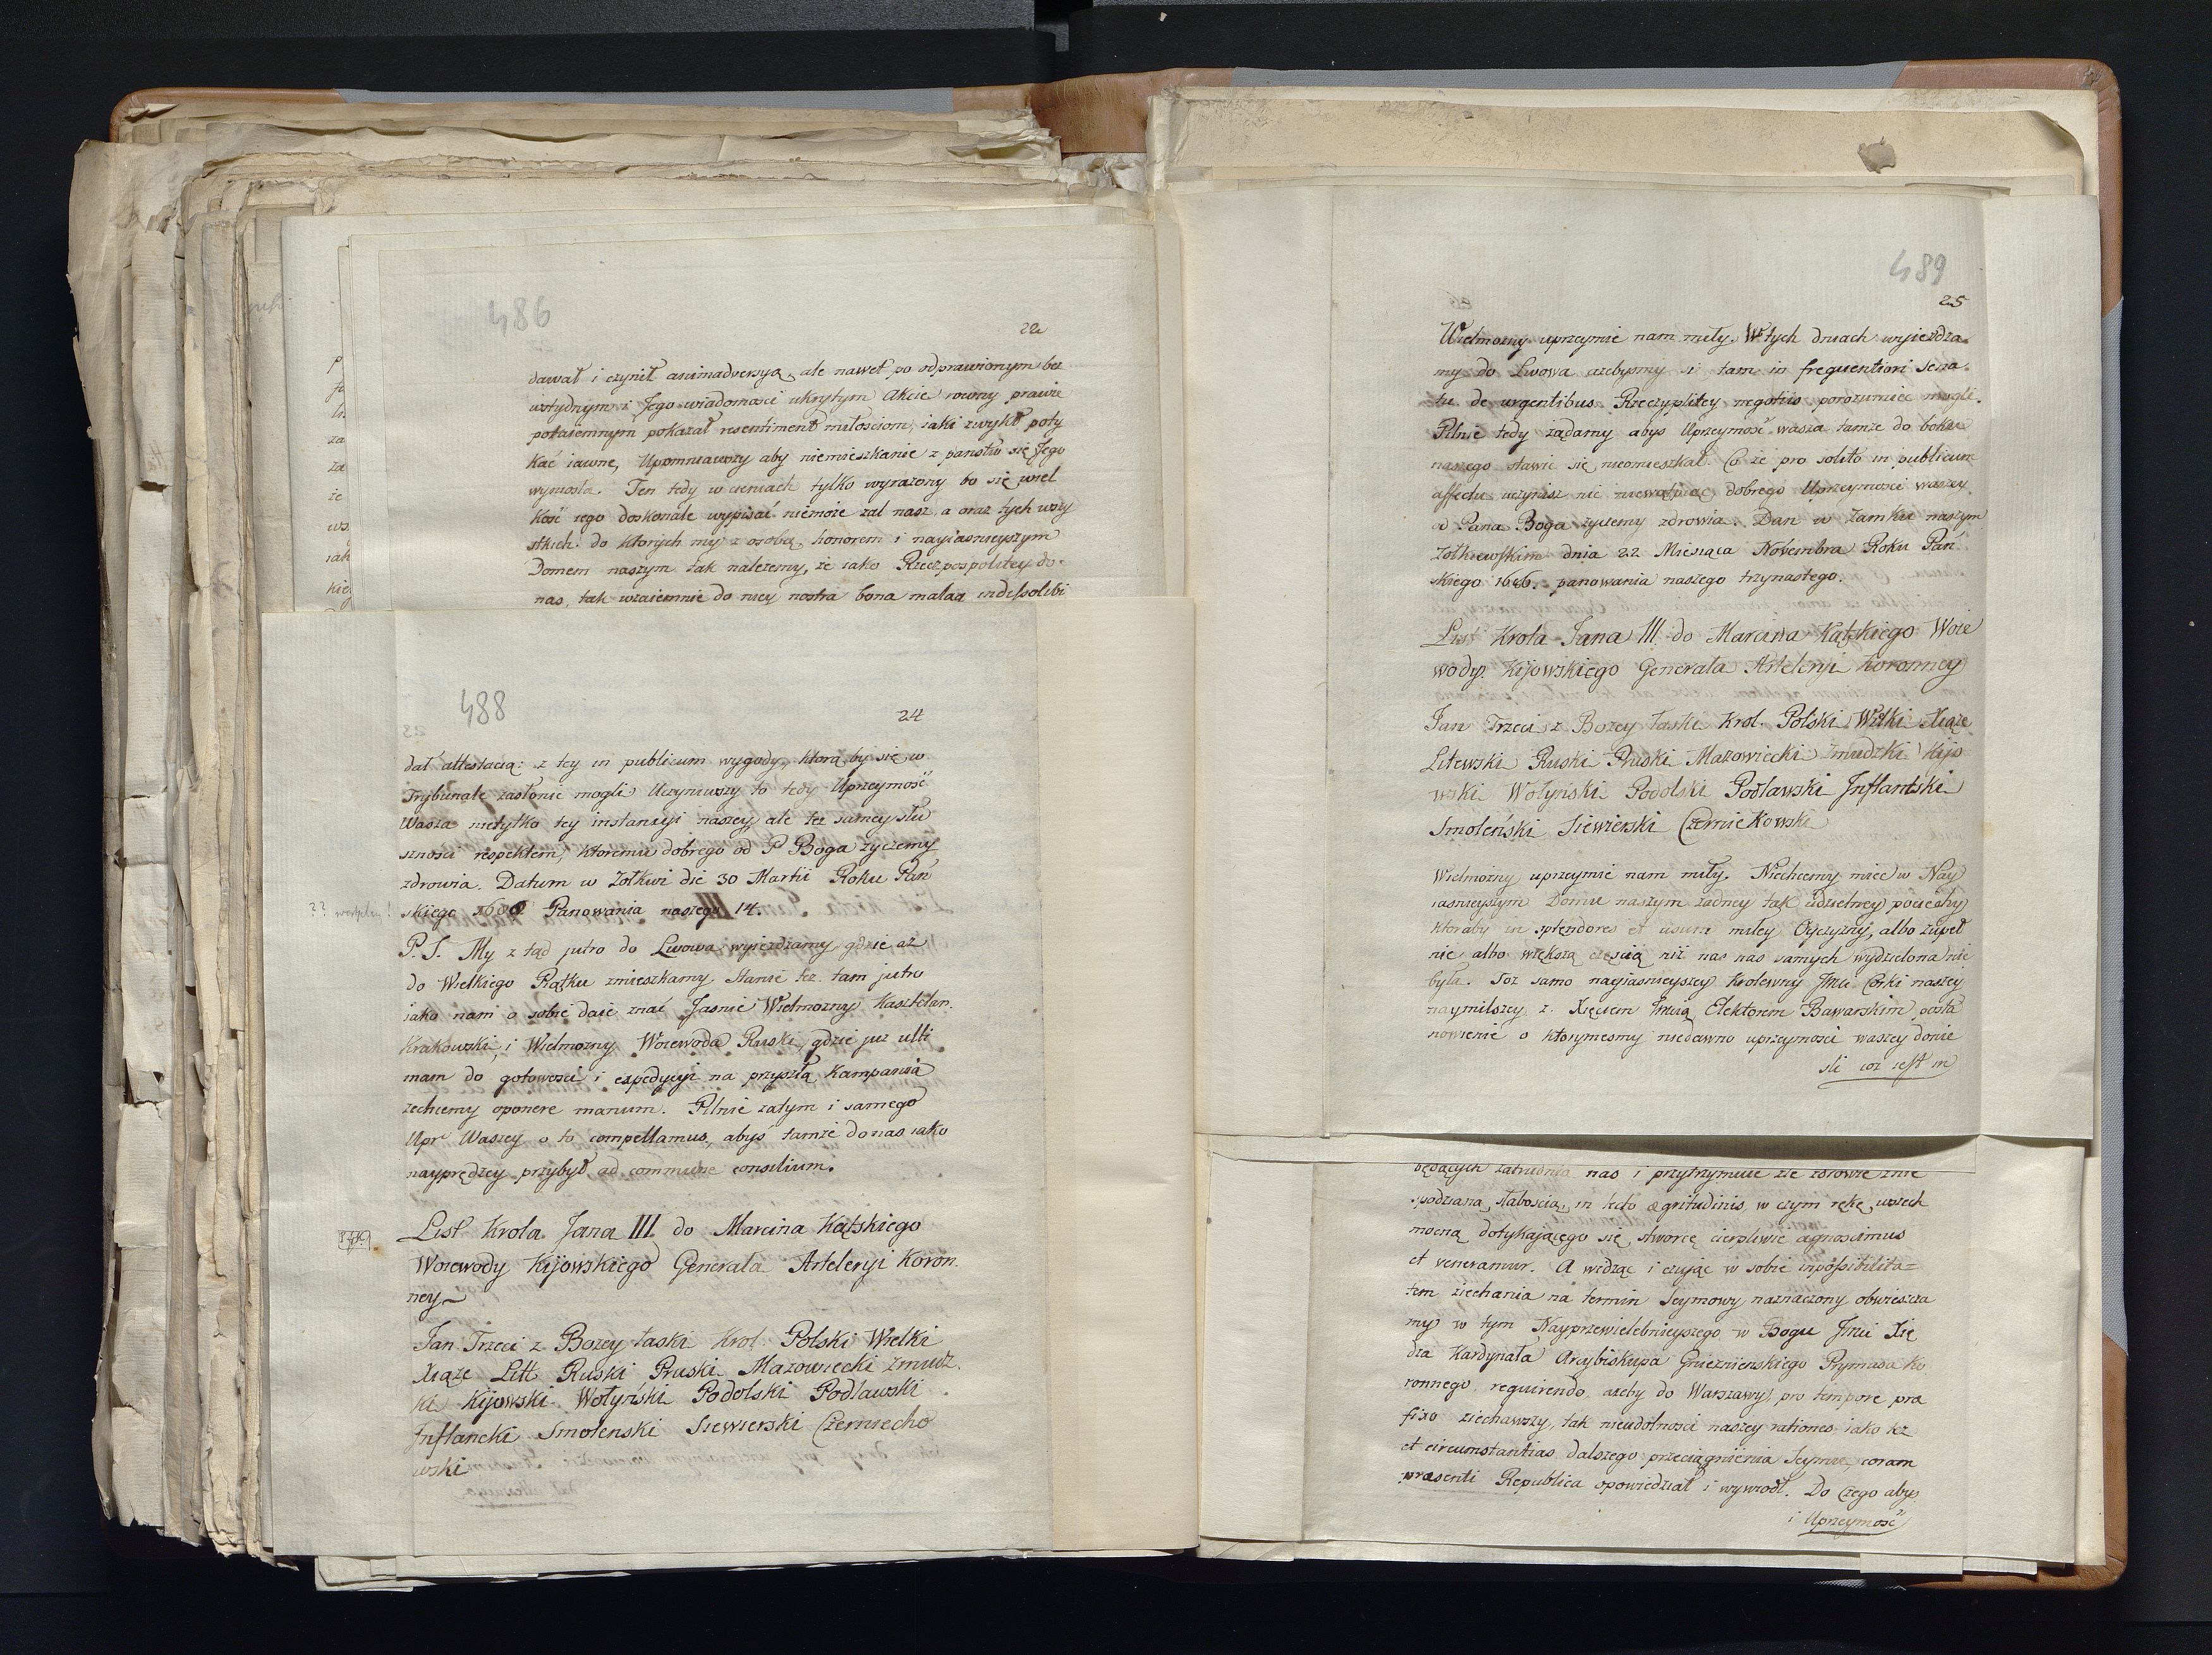 486
22
dawał i czynił animadversyą, ale nawet po odprawionym bez
wstydnym i Jego wiadomosci ukrytym akcie rowny prawie
potaiemnym pokazał resentiment miłosciom, iaki zwykł poty
kać iawne, Upomniawszy aby niemieszkanie z panstw się Jego
wyniosła. Ten tedy w cieniach tylko wyrazony bo się wiel
kość iego doskonale wypisać niemoże zal nasz, a oraz tych wszy
stkich do ktorych my z osobą, honorem i nayiasnieyszym
Domem naszym tak nalezemy, że iako Rzeczpospolitey do
nas, tak wzaiemnie do niey nostra bona malaq indissolibi
p
za
za
że
ws
iak
kie
488
24
dał attestacią: z tey in publicum wygody, ktorą by się w
Trybunale zasłonic mogli Uczyniwszy to tedy Uprzeymość
Wasza nietylko tey instancyi naszey, ale tez samey słu
sznosci respektem, ktoremu dobrego od P Boga zyczemy
zdrowia. Datum w Zołkwi die 30 Martii Roku Pań
skiego Panowania naszego 14.
P. S. My z tąd jutro do Lwowa wyiezdzamy gdzie az
do Wielkiego Piątku zmieszkamy Stanie tez tam jutro
iako nam o sobie daie znać Jasnie Wielmozny Kasztelan
Krakowski, i Wielmozny Woiewoda Ruski, gdzie juz ulti
mam do gotowosci i expedycyi na przyszłą Kampanią
zechcemy oponere manum. Pilnie zatym i samego
Upr Waszey o to compellamus, abyś tamże do nas iako
nayprędzey przybył ad commune consilium.
List Krola Jana III. do Marcina Kątskiego
Woiewody Kijowskiego Generała Arteleryi Koron
ney
Jan Trzeci z Bozey łaski Krol Polski Wielki
Xiąże Litt Ruski Pruski Mazowiecki Zmudz
ki Kijowski Wołyński Podolski Podlawski
Inflancki Smolenski Siewierski Czerniecho
wski
489
25
Wielmozny uprzeymie nam miły. W tych dniach wyiezdza
my do Lwowa azebysmy i tam in frequentiori Sena
tu de urgentibus Rzeczyplitey negotiis porozumiec mogli.
Pilnie tedy żądamy abys Uprzeymość wasza tamże do boku
naszego stawic się nieomieszkał. Co że pro solito in publicum
affectu uczynisz nic niewątpiąc dobrego Uprzeymosci waszey
od Pana Boga zyczemy zdrowia. Dan w Zamku naszym
Zołkiewskim dnia 22 Miesiąca Novembra Roku Pań
skiego 1686. panowania naszego trzynastego.
List Krola Jana III. do Marcina Kątskiego Woie
wody Kijowskiego Generała Arteleryi Koronney
Jan Trzeci z Bozey łaski Krol Polski Wilki Xiąze
Litewski Ruski Pruski Mazowiecki Zmudzki Kijo
wski Wołyński Podolski Podlawski Inflantski
Smoleński Siewierski Czerniekowski
Wielmożny uprzeymie nam miły. Niechcemy miec w Nay
iasnieyszym Domu naszym żadney tak udzielney pociechy
ktoraby in splendores et usum miłey Oyczyzny, albo zupeł
nie albo większą częscią niż nas nas samych wydzielona nie
była. Toz samo nayiasnieyszey Krolewny Jmci Corki naszey
naymilszey z Xięciem Jmcią Elektorem Bawarskim posta
nowienie o ktorymesmy niedawno uprzeymosci waszey donie
sli coz iest in
będących zatrudnia nas i przytrzymuie złe zdrowie znie
spodzianą słaboscią, in lecto ægritudinis, w czym rękę wszech
mocną dotykaiącego się stworcę cierpliwie agnoscimus
et veneramur. A widząc i czuiąc w sobie inpossibilita=
tem ziechania na termin Seymowy naznaczony obwieszcza
my w tym Nayprzewielebnieyszego w Bogu Jmci Xię
dza Kardynała Arcybiskupa Gnieznienskiego Prymasa Ko
ronnego, requirendo, azeby do Warszawy pro tempore præ
fixo ziechawszy, tak nieudolnosci naszey rationes iako tez
et circumstantias dalszego przeciągnienia Seymu, coram
præsenti Republica opowiedział i wywiodł. Do czego abys
i Uprzeymość